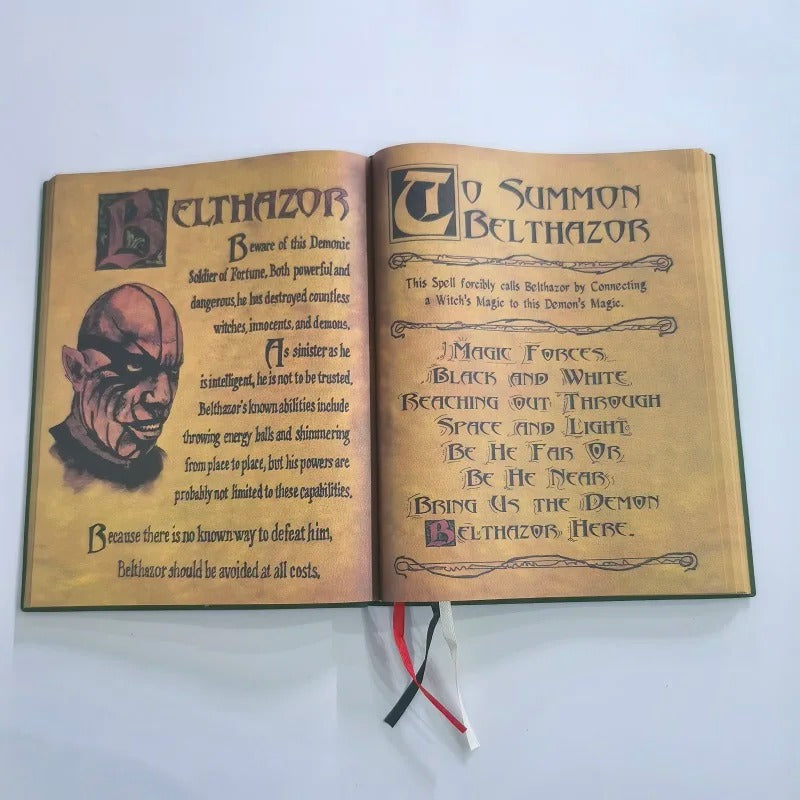 BELTHAZOR
Beware of this Demonic
Soldier of Fortune. Both powerful and
dangerous, he has destroyed countless
witches, innocents, and demons.
As sinister as he
is intelligent, he is not to be trusted.
Belthazor's known abilities include
throwing energy balls and shimmering
from place to place, but his powers are
probably not limited to these capabilities.
Because there is no known way to defeat him,
Belthazor should be avoided at all costs.
TO SUMMON
BELTHAZOR
This Spell forcibly calls Belthazor by Connecting
a Witch's Magic to this Demon's Magic.
MAGIC FORCES
BLACK AND WHITE
REACHING OUT THROUGH
SPACE AND LIGHT
BE HE FAR OR
BE HE NEAR
BRING US THE DEMON
BELTHAZOR HERE.